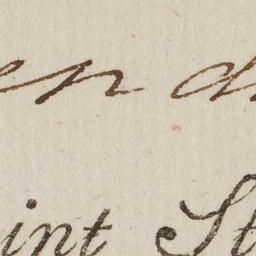 en d
int St